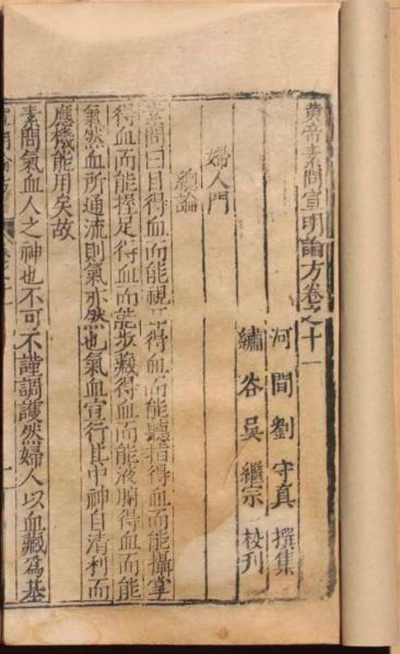 黄帝素問宣明論方卷之十一
河間劉守真撰集
繡谷吳繼宗校刋
婦人門
總論
素問曰目得血而能視耳得血而能聽指得血而能攝掌
得血而能握足得血而能步藏得血而能液腑得血而能
氣然血所通流則氣亦然也氣血宣行其中神自清利而
應機能用矣故
素問氣血人之神也不可不謹調護然婦人以血藏為基